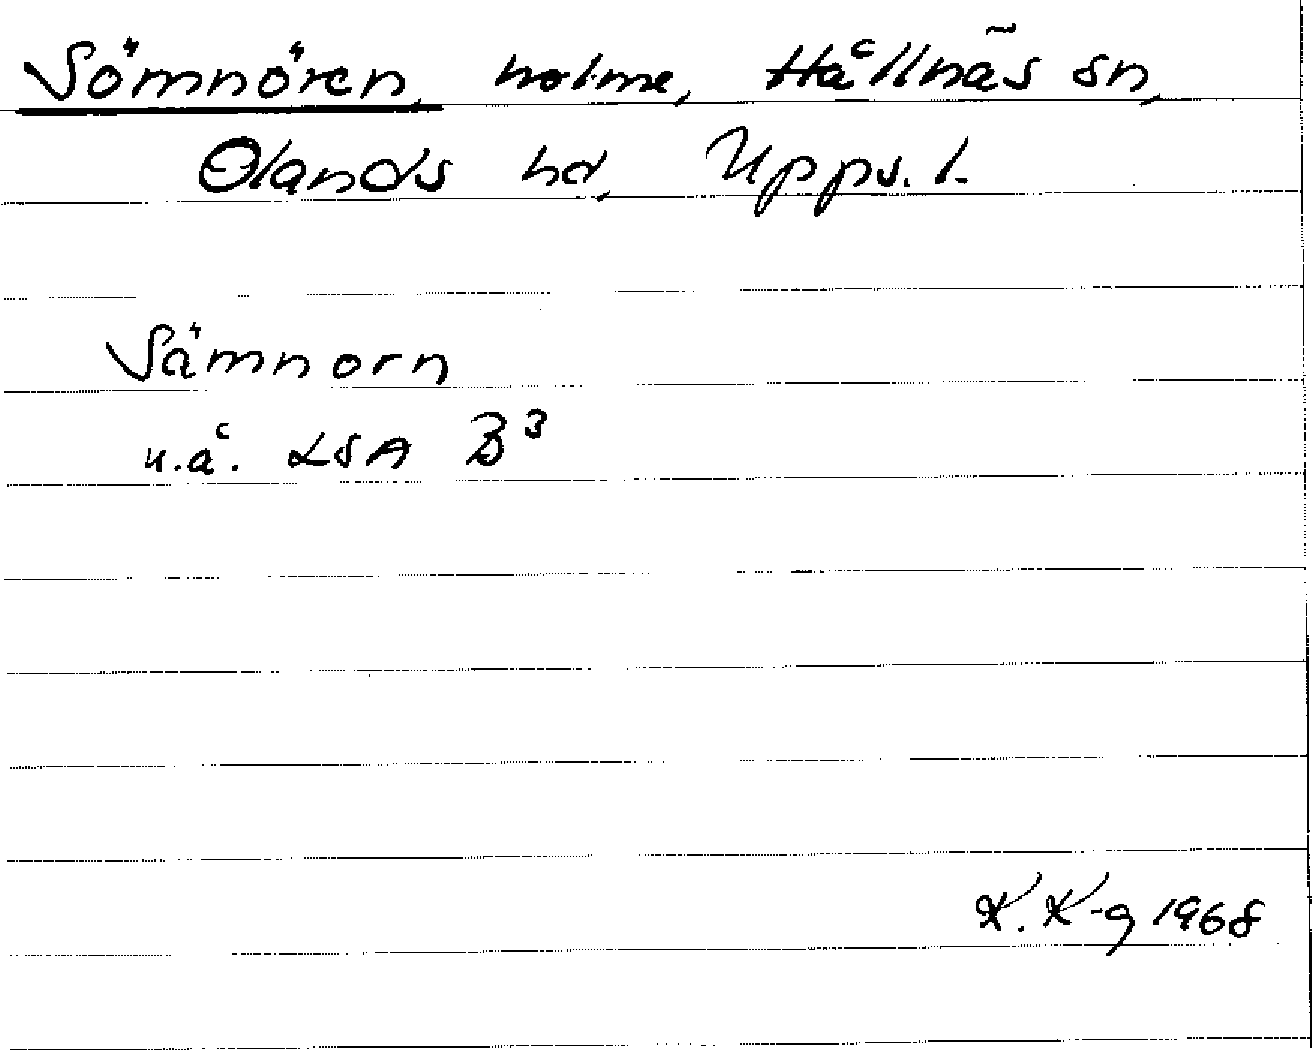 Sömnören, holme, Hållnäs sn,
Olands hd, Upps. l.
Sämnorn
u.å. LSA B3
K. K-g 1968